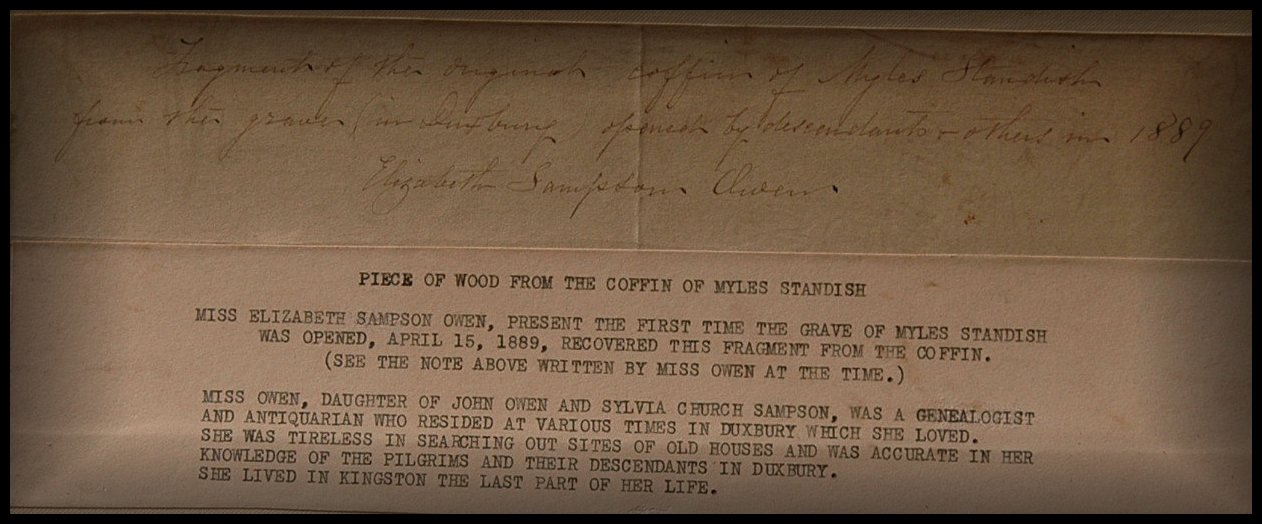 Fragment of the original coffin of Myles Standish
from the grave (in Duxbury) opened by descendants & others in 1889
Elizabeth Sampson Owen.
PIECE OF WOOD FROM THE COFFIN OF MYLES STANDISH
MISS ELIZABETH SAMPSON OWEN, PRESENT THE FIRST TIME THE GRAVE OF MYLES STANDISH
WAS OPENED, APRIL 15, 1889, RECOVERED THIS FRAGMENT FROM THE COFFIN.
(SEE THE NOTE ABOVE WRITTEN BY MISS OWEN AT THE TIME.)
MISS OWEN, DAUGHTER OF JOHN OWEN AND SYLVIA CHURCH SAMPSON, WAS A GENEALOGIST
AND ANTIQUARIAN WHO RESIDED AT VARIOUS TIMES IN DUXBURY WHICH SHE LOVED.
SHE WAS TIRELESS IN SEARCHING OUT SITES OF OLD HOUSES AND WAS ACCURATE IN HER
KNOWLEDGE OF THE PILGRIMS AND THEIR DESCENDANTS IN DUXBURY.
SHE LIVED IN KINGSTON THE LAST PART OF HER LIFE.